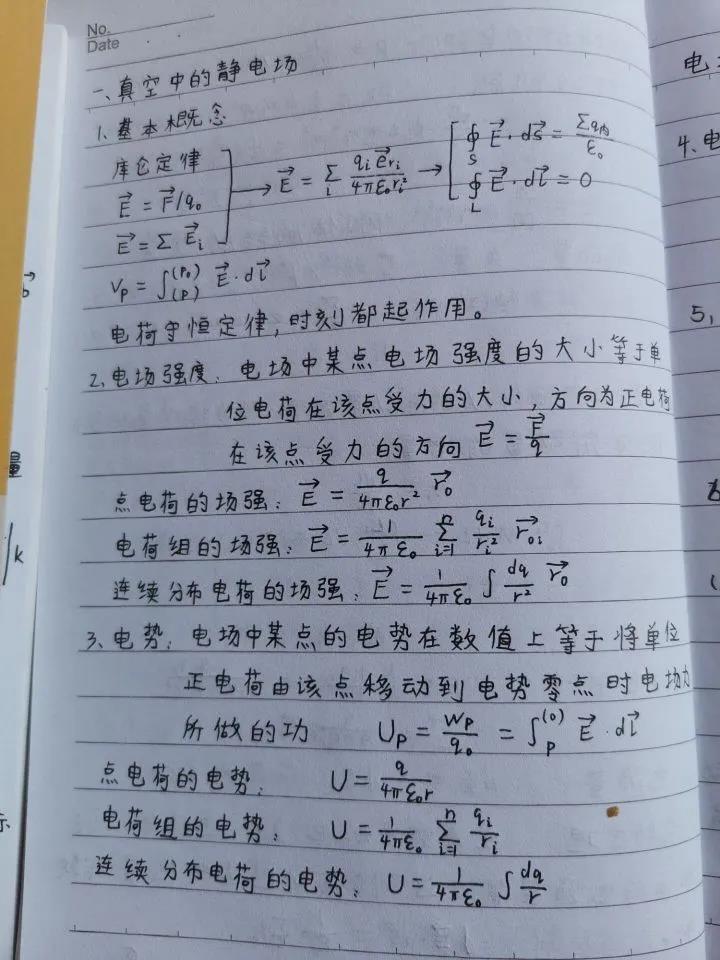 No.
Date
一、真空中的静电场
1、基本概念
库仑定律
E⃗ = F⃗/q₀
E⃗ = Σ E⃗ᵢ
→ E⃗ = Σᵢ qᵢe⃗ᵣᵢ / 4πε₀rᵢ² → [ ∮_S E⃗·ds⃗ = Σq内/ε₀
∮_L E⃗·dl⃗ = 0
V_P = ∫_(P)^(P₀) E⃗·dl⃗
电荷守恒定律,时刻都起作用。
2、电场强度:电场中某点电场强度的大小等于单
位电荷在该点受力的大小,方向为正电荷
在该点受力的方向 E⃗ = F⃗/q
点电荷的场强:E⃗ = q/4πε₀r² r⃗₀
电荷组的场强:E⃗ = 1/4πε₀ Σ_{i=1}^{n} qᵢ/rᵢ² r⃗₀ᵢ
连续分布电荷的场强:E⃗ = 1/4πε₀ ∫ dq/r² r⃗₀
3、电势:电场中某点的电势在数值上等于将单位
正电荷由该点移动到电势零点时电场力
所做的功 U_P = W_P/q₀ = ∫_P^(0) E⃗·dl⃗
点电荷的电势: U = q/4πε₀r
电荷组的电势: U = 1/4πε₀ Σ_{i=1}^{n} qᵢ/rᵢ
连续分布电荷的电势: U = 1/4πε₀ ∫ dq/r
电
4、电
5、
量
∫k